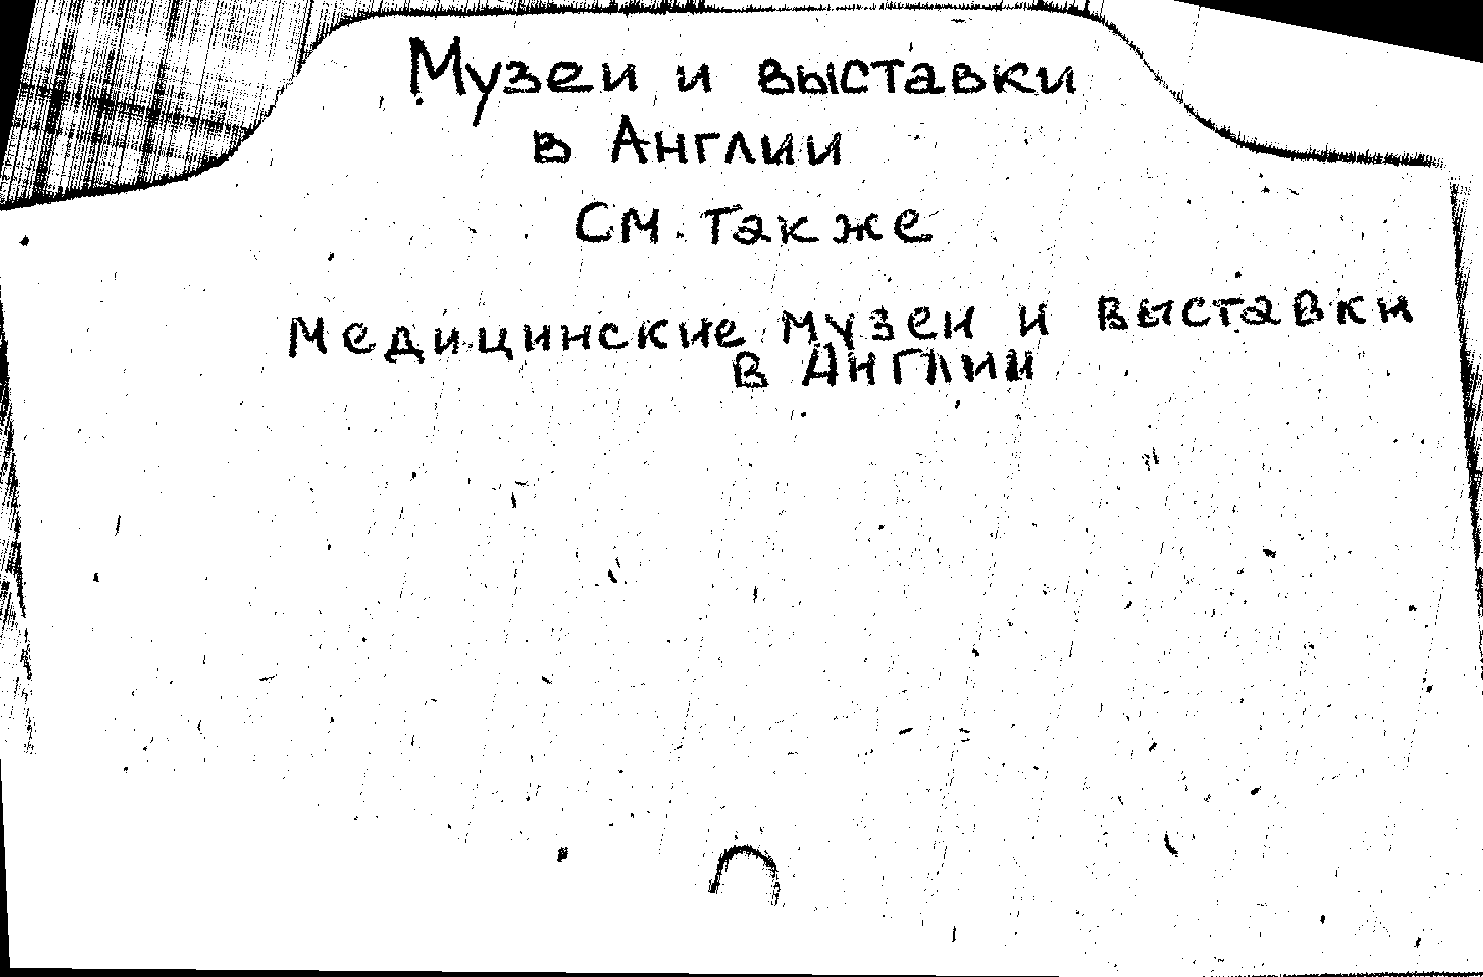 Музеи и выставки
в Англии
См. также
Медицинские музеи и выставки
в Англии